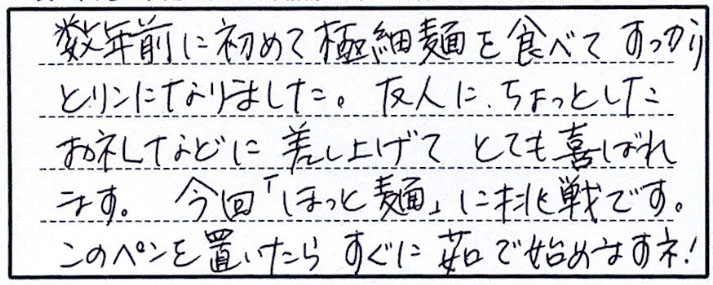 数年前に初めて極細麺を食べて すっかり
とりこになりました。友人に、ちょっとした
お礼などに 差し上げて とても喜ばれ
ます。 今回「ほっと麺」に挑戦です。
このペンを置いたら すぐに 茹で始めますネ!